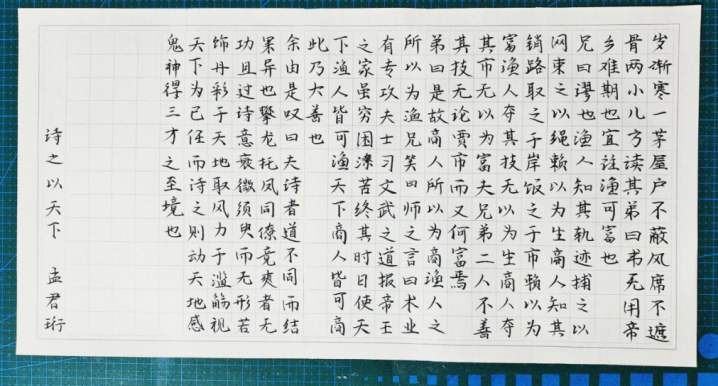 岁渐寒一茅屋户不蔽风席不遮
骨两小儿方读其弟曰书无用帝
乡难期也宜诠渔可富也
兄曰谬也渔人知其轨迹捕之以
网束之以绳赖以为生商人知其
销路取之于岸饭之于市赖以为
富渔人夺其技无以为生商人夺
其市无以为富夫兄弟二人不善
其技无论贾市而又何富焉
弟曰是故商人所以为商渔人之
所以为渔兄笑曰师之言曰术业
有专攻夫士习文武之道报帝王
之家虽穷困潦苦终其时日使天
下渔人皆可渔天下商人皆可商
此乃大善也
余由是叹曰夫诗者道不同而结
果异也攀龙托凤同僚竞爽者无
功且过诗意衰微须臾而无形若
饰丹彩于天地取风力于滥觞视
天下为己任而诗之则动天地感
鬼神得三才之至境也
诗之以天下 孟君珩